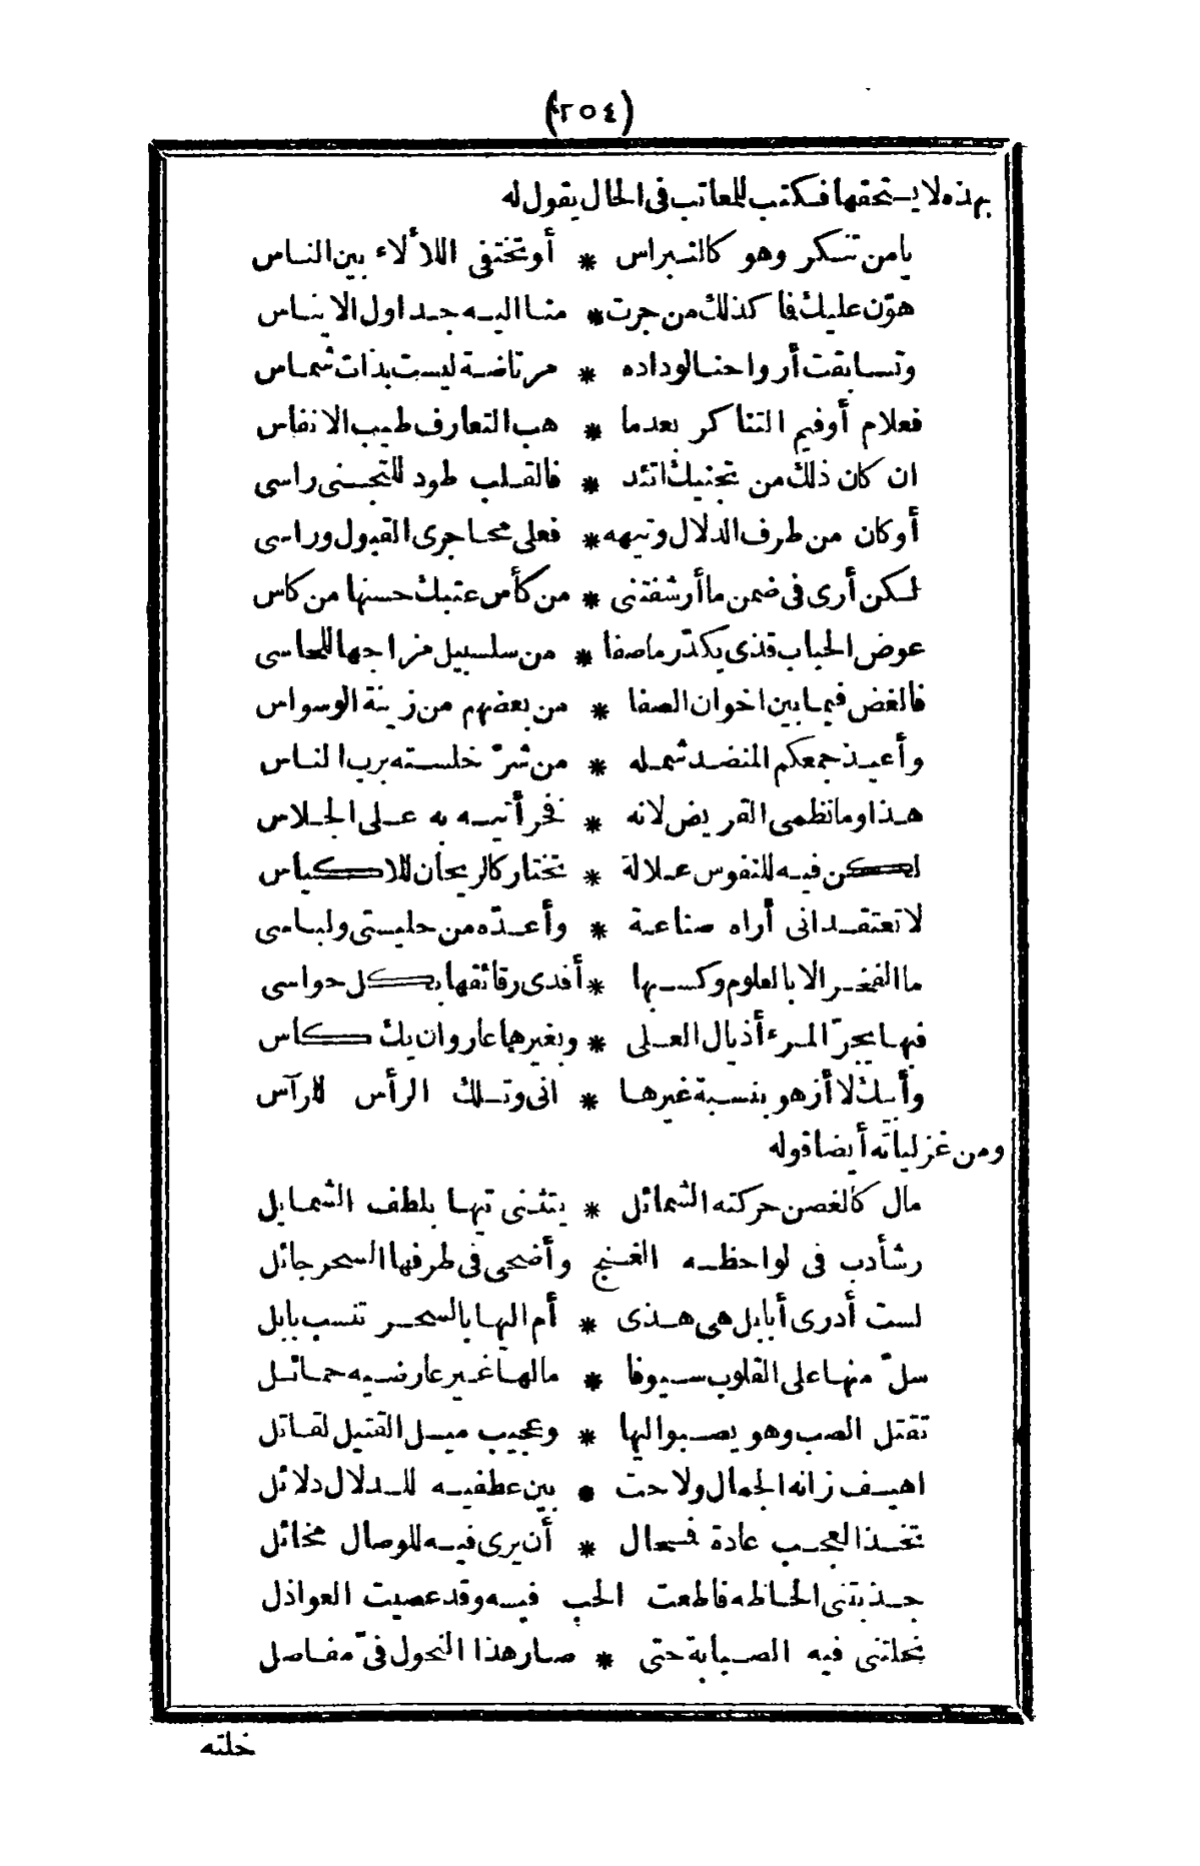 (٢٥٤)
بهذه لا يستحقها فكتب للمعاتب فى الحال يقول له
يا من تنكر وهو كالنبراس * أو تختفى اللألاء بين الناس
هوّن عليك فا كذلك من جرت * منا اليه جداول الايناس
وتسابقت أرواحنا لوداده * مرتاضة ليست بذات شماس
فعلام أوفيم التنا كر بعدما * هب التعارف طيب الانفاس
ان كان ذلك من تجنيك اتئد * فالقلب طود للتجنى راسى
أو كان من طرف الدلال وتيهه * فعلى محاجرى القبول وراسى
لكن أرى فى ضمن ما أرشفتنى * من كأس عتبك حسنها من كاس
عوض الحباب قذى يكدّر ما صفا * من سلسبيل مزاجها للحاسى
فالغض فيما بين اخوان الصفا * من بعضهم من زينة الوسواس
وأعيذ جمعكم المنضد شمله * من شرّ خلسته برب الناس
هذا وما نظمى القريض لانه * فخر أتيه به على الجلاس
لكن فيه للنفوس علالة * تختار كالريحان للاكياس
لا تعتقد انى أراه صناعة * وأعدّه من حليتى ولباسى
ما الفخر الا بالعلوم وكسبها * أفدى رقائقها بكل حواسى
فبها يجرّ المرء أذيال العلى * وبغيرها عار وان يك كاس
وأبيك لا أزهو بنسبة غيرها * انى وتلك الرأس للارآس
ومن غزلياته أيضا قوله
مال كالغصن حركته الشمائل * يتثنى تيها بلطف الشمايل
رشأدب فى لواحظه الغنج وأضحى فى طرفها السحر جائل
لست أدرى أبابل هى هذى * أم اليها بالسحر تنسب بابل
سلّ منها على القلوب سيوفا * مالها غير عارضيه حمائل
تقتل الصب وهو يصبو اليها * وعجيب ميل القتيل لقاتل
اهيف زانه الجمال ولاحت * بين عطفيه للدلال دلائل
تخذ العجب عادة فمحال * أن يرى فيه للوصال مخائل
جذبتنى الحاظه فاطعت الحب فيه وقد عصيت العواذل
نحلتنى فيه الصبابة حتى * صار هذا النحول فىّ مفاصل
خلته